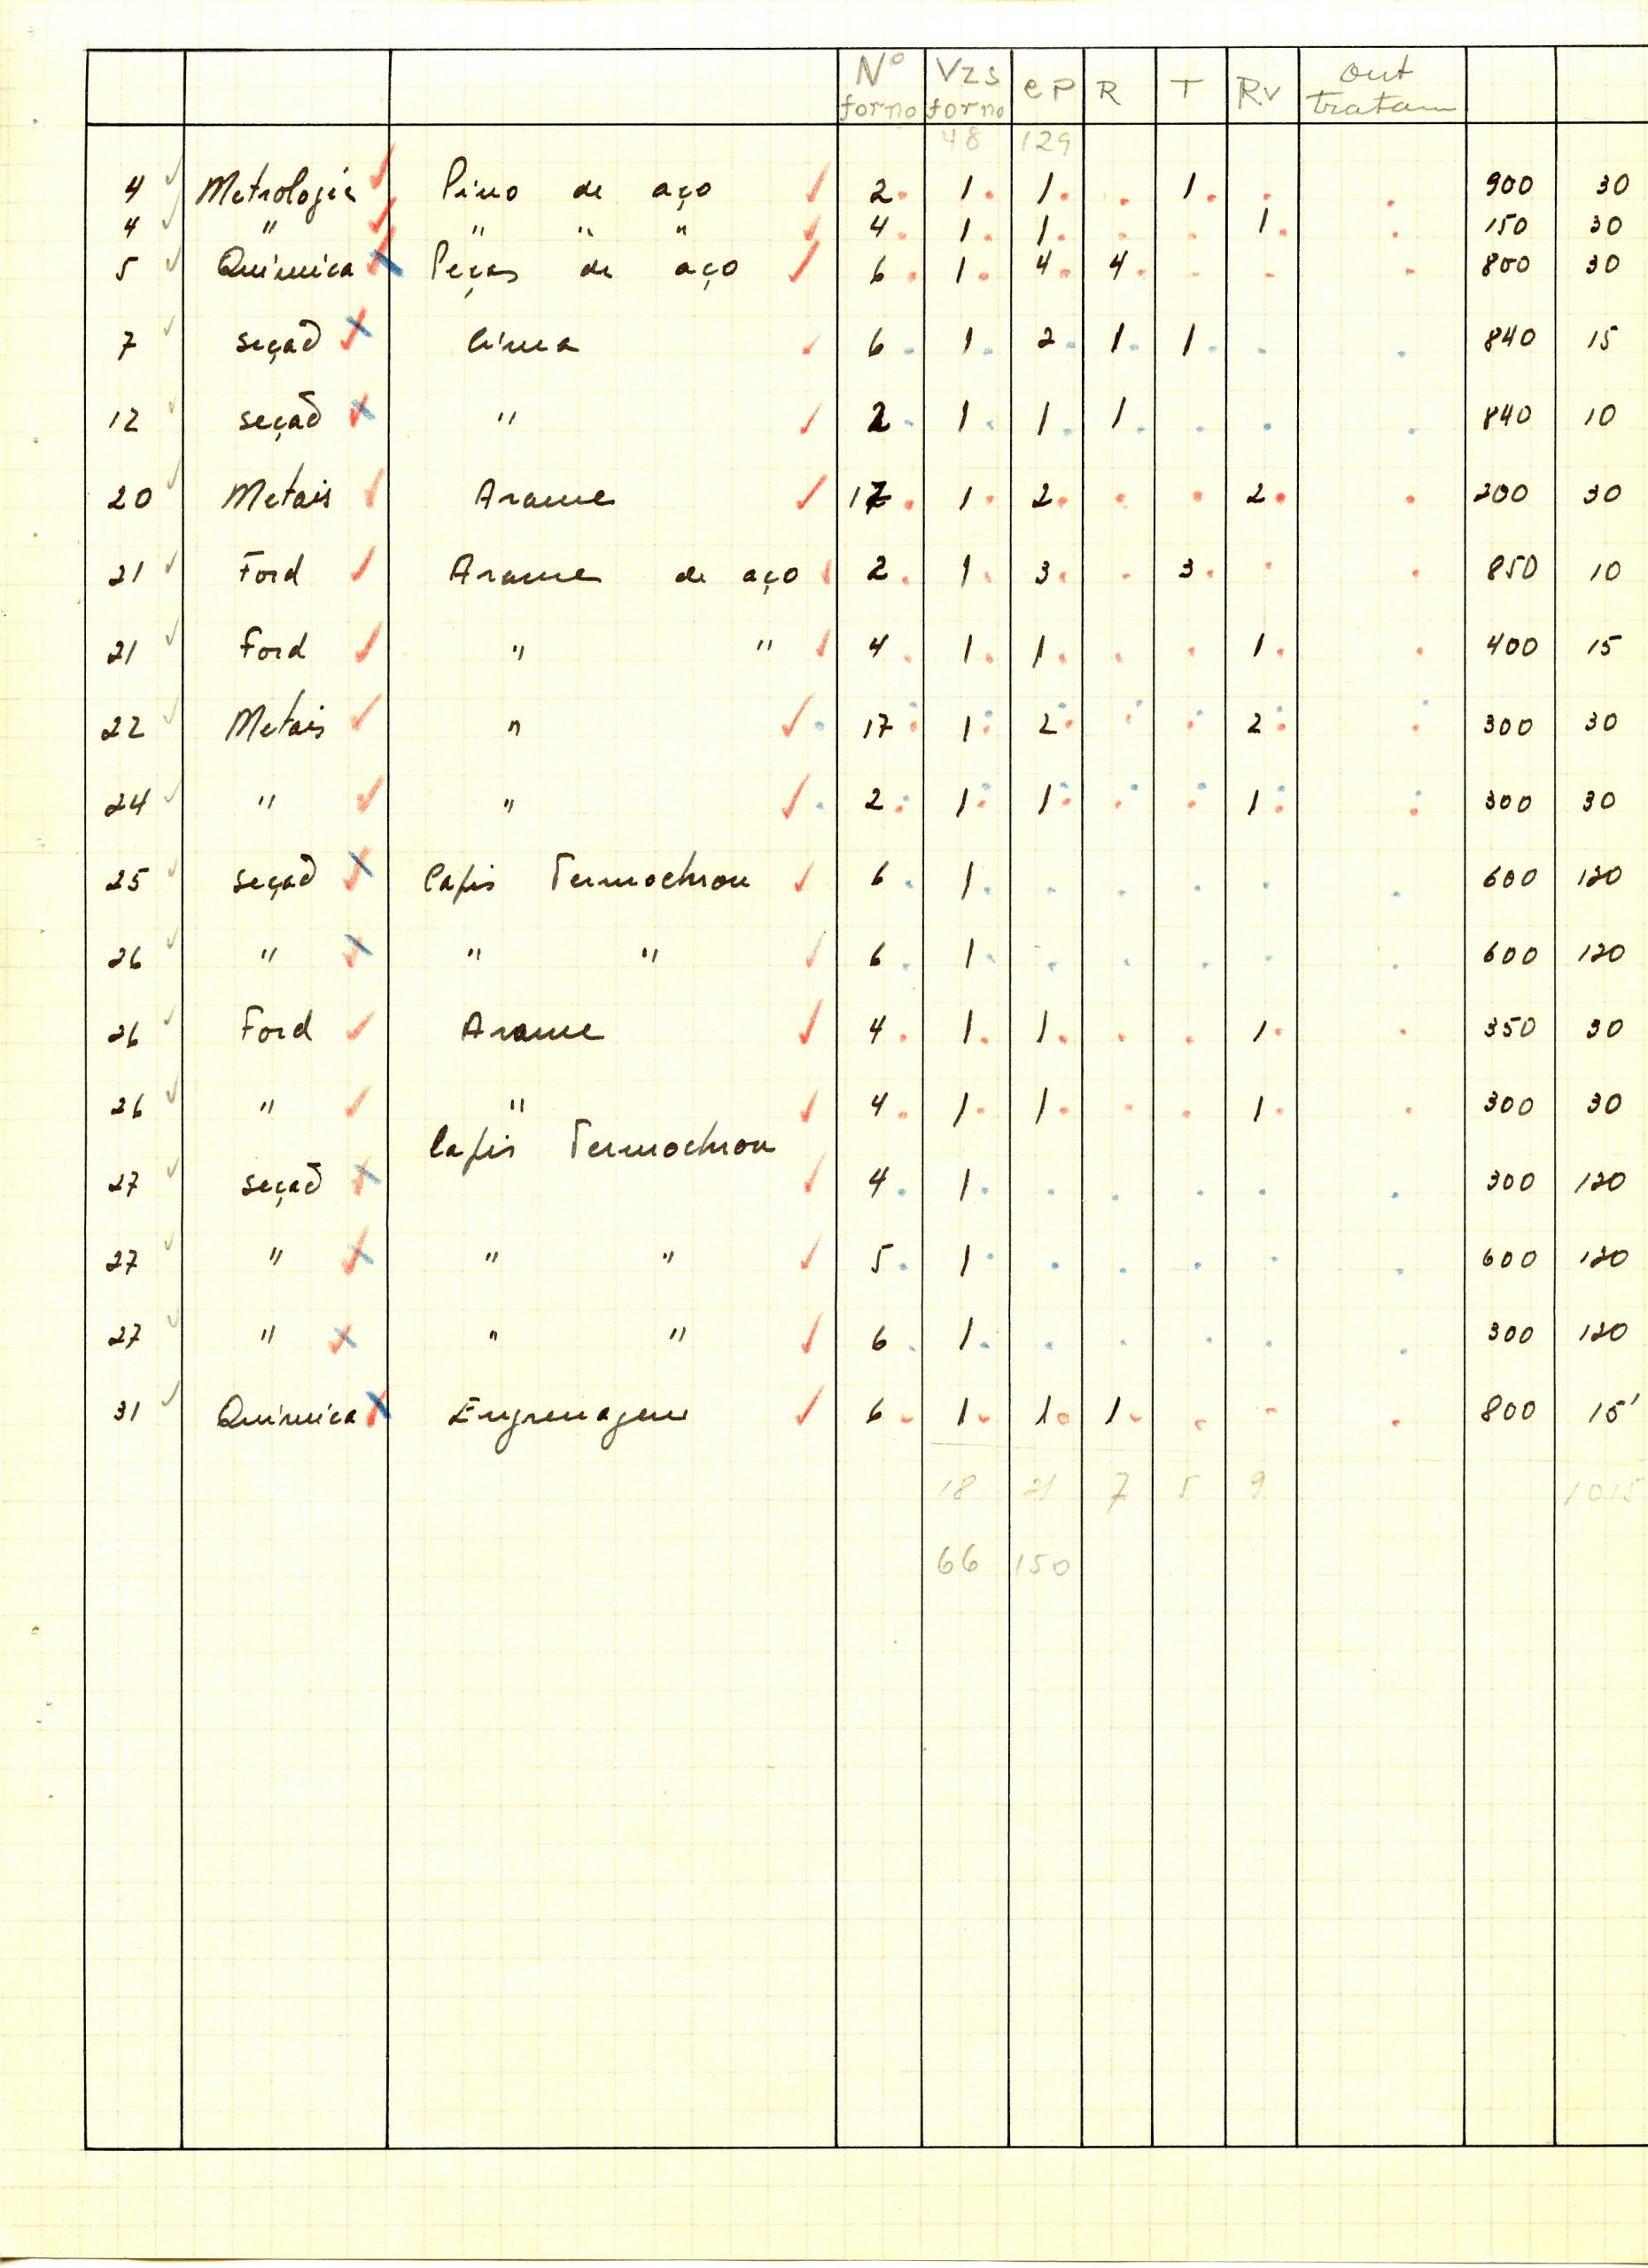 Nº forno Vzs forno cP R T Rv out tratam
48 129
4 Metrologia Pino de aço 2 1 1 1 900 30
4 " " " " 4 1 1 1 150 30
5 Química Peças de aço 6 1 4 4 800 30
7 seção lima 6 1 2 1 1 840 15
12 seção " 2 1 1 1 840 10
20 Metais Arame 17 1 2 2 200 30
21 Ford Arame de aço 2 1 3 3 850 10
21 Ford " " 4 1 1 1 400 15
22 Metais " 17 1 2 2 300 30
24 " " 2 1 1 1 300 30
25 seção lapis Termochrom 6 1 600 120
26 " " " 6 1 600 120
26 Ford Arame 4 1 1 1 350 30
26 " " 4 1 1 1 300 30
27 seção lapis Termochrom 4 1 300 120
27 " " " 5 1 600 120
27 " " " 6 1 300 120
31 Química Engrenagem 6 1 1 1 800 15'
18 21 7 5 9 1015
66 150